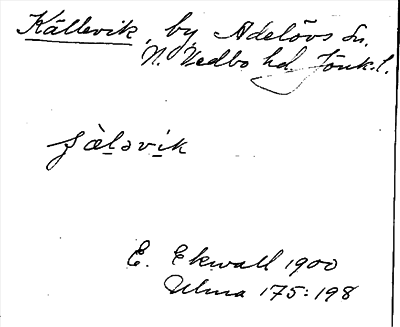 Källevik, by Adelövs sn.
N. Vedbo hd. Jönk.l.
E. Ekwall 1900
Ulma 175:198